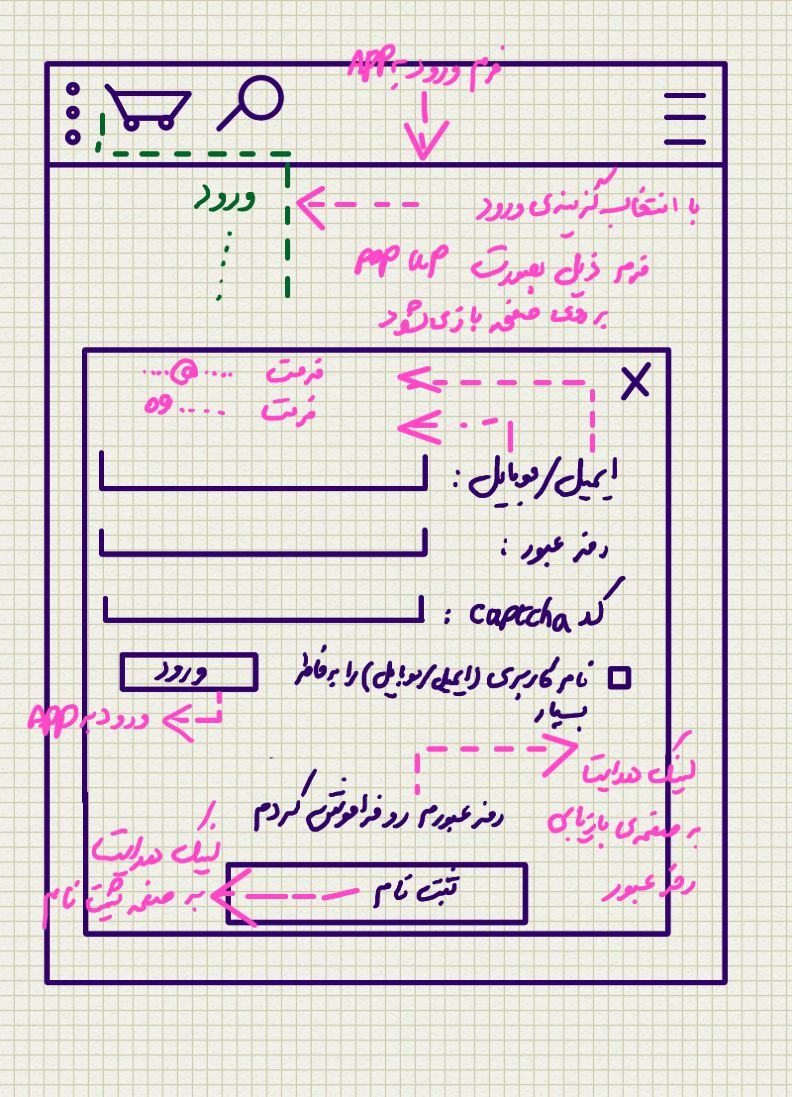 فرم ورود به APP
ورود
با انتخاب گزینه‌ی ورود
فرم ذیل بصورت pop up
بر روی صفحه بازی شود
فرمت ....@....
فرمت 09.....
ایمیل/موبایل :
رمز عبور :
کد captcha :
نام کاربری (ایمیل/موبایل) را بخاطر
بسپار
ورود
ورود به APP
لینک هدایت
به صفحه‌ی بازیابی
رمز عبور
رمز عبورم رو فراموش کردم
لینک هدایت
به صفحه ثبت نام
ثبت نام